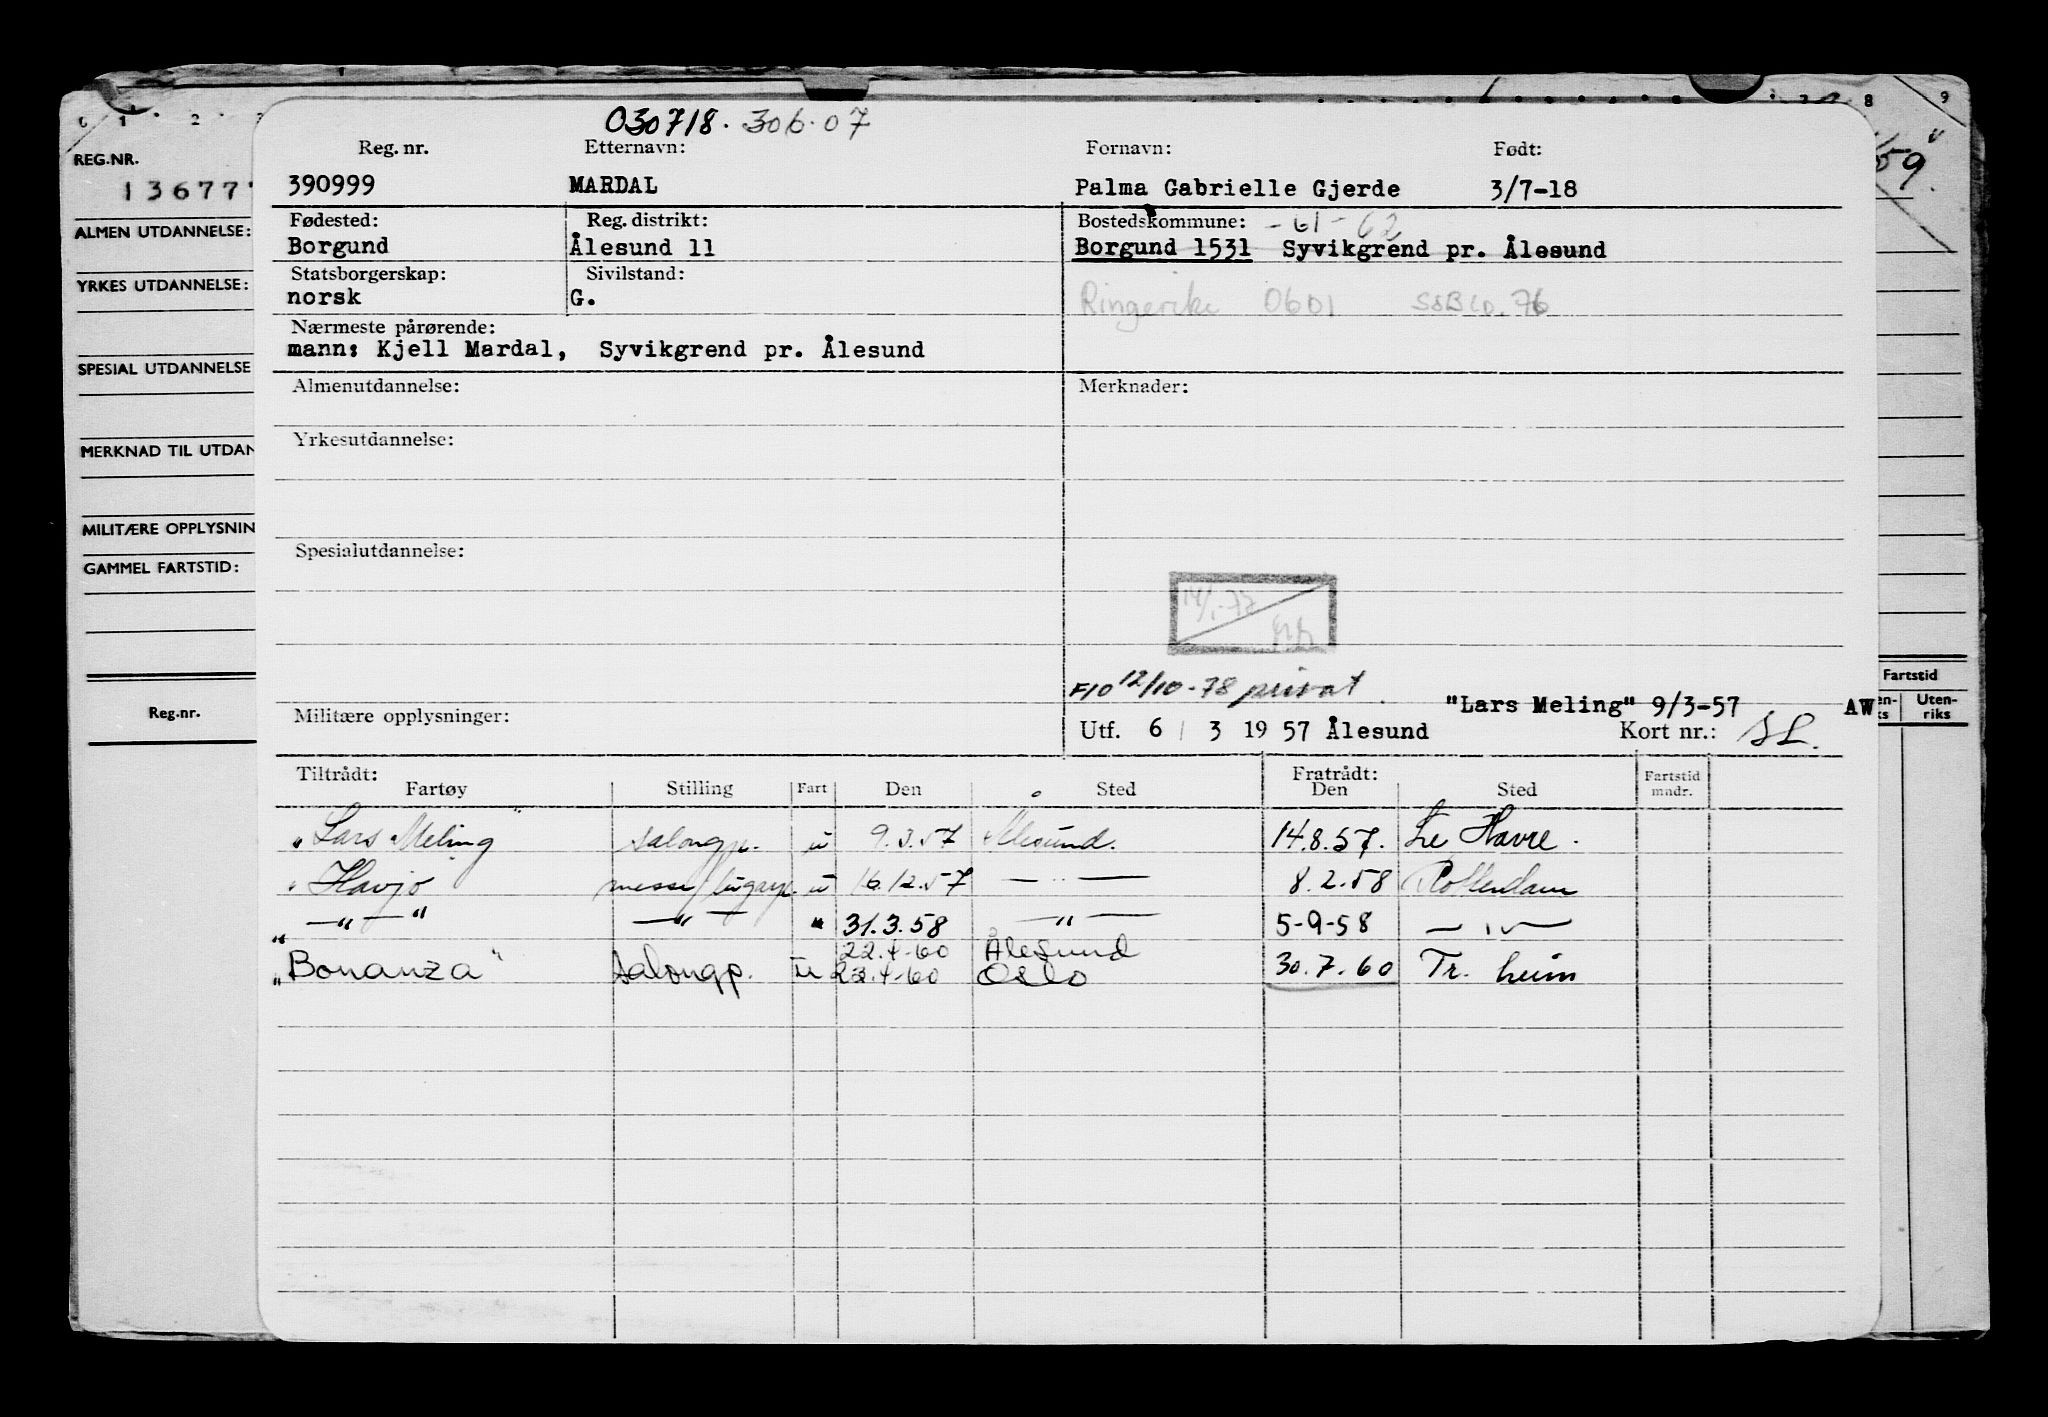 0 1 2 8 9
REG.NR.
136777
ALMEN UTDANNELSE:
YRKES UTDANNELSE:
SPESIAL UTDANNELSE
MERKNAD TIL UTDAN
MILITÆRE OPPLYSNIN
GAMMEL FARTSTID:
Reg.nr.
Fartstid
Uten-
riks
030718. 306.07
Reg. nr. Etternavn: Fornavn: Født:
390999 MARDAL Palma Gabrielle Gjerde 3/7-18
Fødested: Reg. distrikt: Bostedskommune: -61-62
Borgund Ålesund 11 Borgund 1531 Syvikgrend pr. Ålesund
Statsborgerskap: Sivilstand:
norsk G. Ringerike 0601
Nærmeste pårørende:
mann: Kjell Mardal, Syvikgrend pr. Ålesund
Almenutdannelse: Merknader:
Yrkesutdannelse:
Spesialutdannelse:
14/1-77
F10 12/10-78 privat
"Lars Meling" 9/3-57 AW
Militære opplysninger: Utf. 6 / 3 19 57 Ålesund Kort nr.: SL.
Tiltrådt: Fratrådt: Fartstid
Fartøy Stilling Fart Den Sted Den Sted mndr.
"Lars Meling" salongp. u 9.3.57 Ålesund. 14.8.57. Le Havre.
" Havjo messe/lugarp. u 16.12.57 — " — 8.2.58 Rotterdam
— " — " — " — " 31.3.58 — " — 5-9-58 — " —
22.4-60 Ålesund
"Bonanza" salongp. u 23.4-60 Oslo 30.7.60 Tr. heim